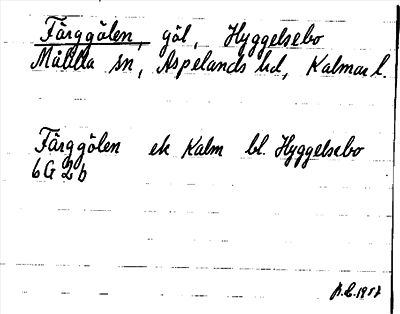 Färggölen, göl, Hyggelsebo
Målilla sn, Aspelands hd, Kalmar l.
Färggölen ek Kalm bl. Hyggelsebo
6G 2b